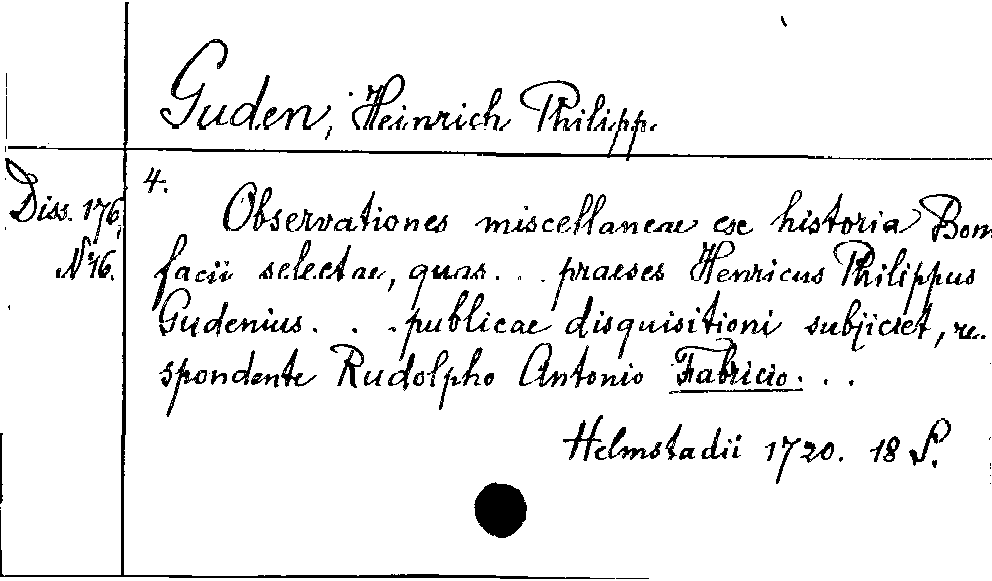 Guden, Heinrich Philipp.
4.
Diss. 176,
Observationes miscellaneae ex historia Boni
No 16.
facii selectae, quas . . . praeses Henricus Philippus
Gudenius . . . publicae disquisitioni subjiciet, re.
spondente Rudolpho Antonio Fabricio. . .
Helmstadii 1720. 18 S.